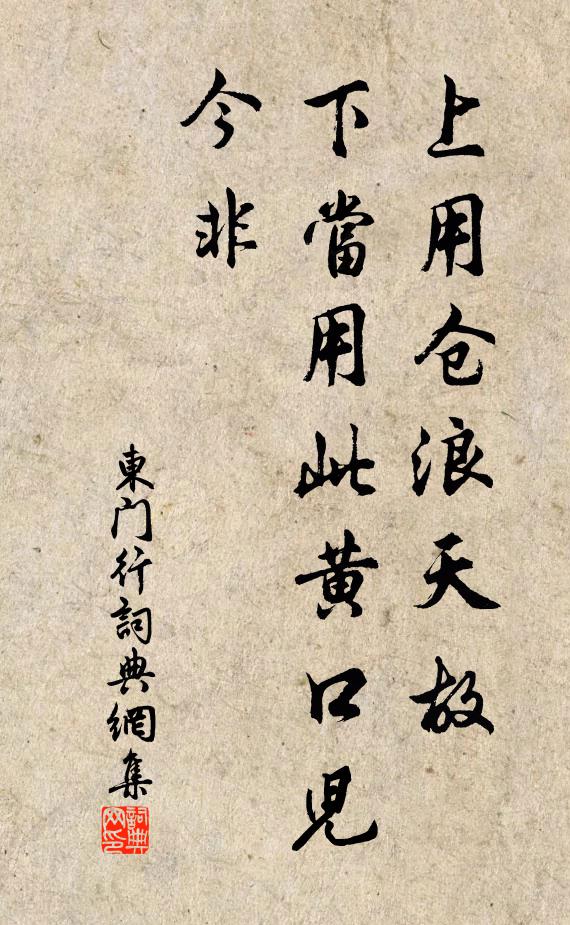 上用仓浪天故
下當用此黄口兒
今非
東門行詞典網集
詞典
网印